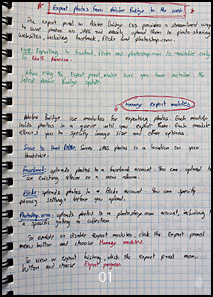 * Export photos from Adobe Bridge to the web *
The export panel in Adobe Bridge CS5 provides a streamlined way
to save photos as JPEG and directly upload them to photo-sharing
websites, including Facebook, Flickr and Photoshop.com.
Note: Exporting to Facebook, Flickr and photoshop.com is available only
in North America.
When using the Export panel make sure you have installed the
latest Adobe Bridge update.
Manage export modules
Adobe Bridge use modules for exporting photos. Each module
holds photos in a queue until you export them. Each module
allows you to specify image size and other options.
Save to Hard Drive: Saves JPEG photos to a location on your
Facebook: uploads photos to a Facebook account. You can upload to
an existing album or a new album.
Flickr: uploads photos to a Flickr account. You can specify
privacy settings before you upload.
Photoshop.com: uploads photos to a photoshop.com account, including
a specific gallery or collection.
To enable or disable export modules, click the Export panel
menu button and choose Manage modules.
To view or export history, click the export panel menu
button and choose Export progress
01